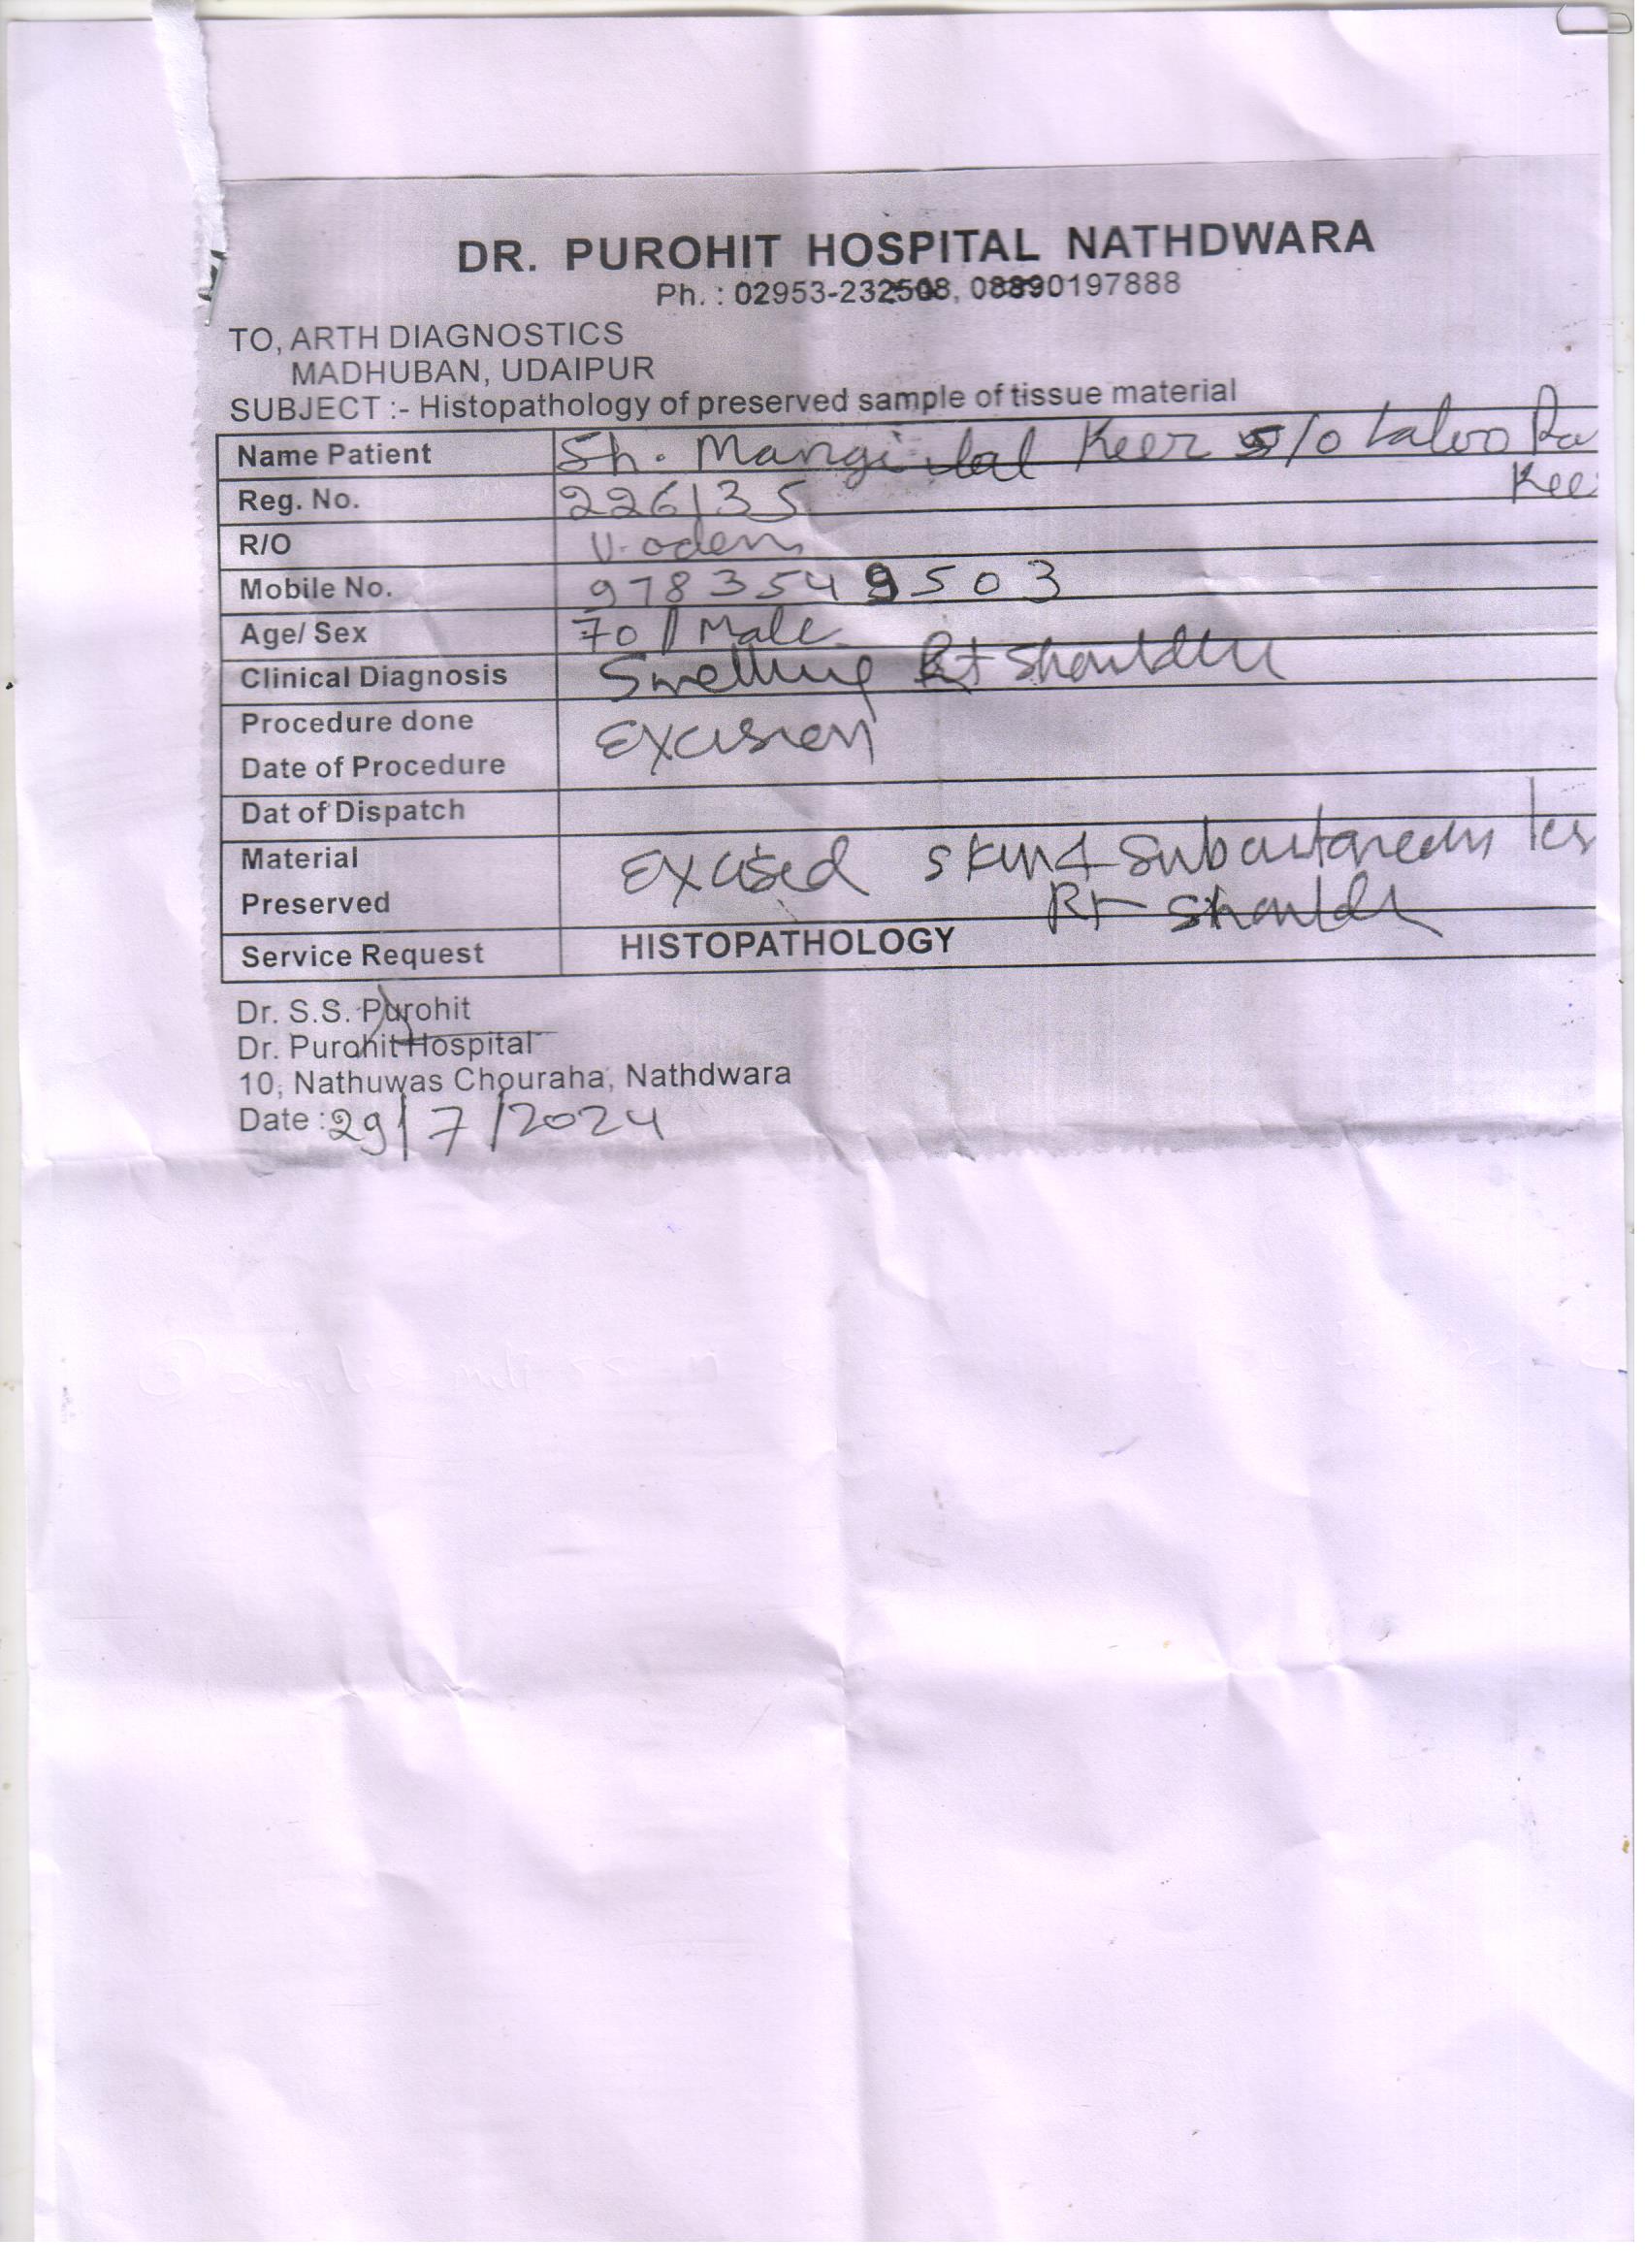 DR. PUROHIT HOSPITAL NATHDWARA
Ph. : 02953-232508, 08890197888
TO, ARTH DIAGNOSTICS
MADHUBAN, UDAIPUR
SUBJECT :- Histopathology of preserved sample of tissue material
Name Patient Sh. Mangi lal Keer S/o Laloo Ra
Kee
Reg. No. 226135
R/O V. oden
Mobile No. 9783549503
Age/ Sex 70 / Male
Clinical Diagnosis Swelling Rt shoulder
Procedure done Excision
Date of Procedure
Dat of Dispatch
Material Excised skin & subcutaneous
Preserved Rt Shoulder
Service Request HISTOPATHOLOGY
Dr. S.S. Purohit
Dr. Purohit Hospital
10, Nathuwas Chouraha, Nathdwara
Date : 29/7/2024